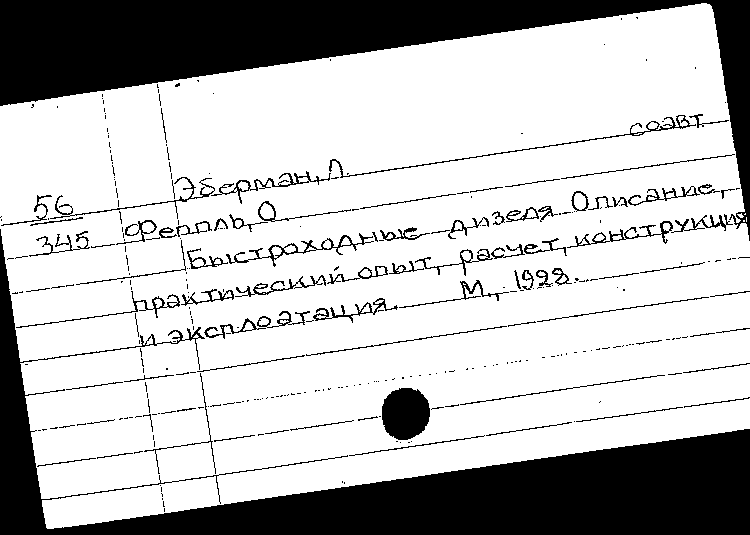 соавт.
Эберман, Л.
56
345
Феппль, О.
Быстроходные дизеля Описание,
практический опыт, расчет, конструкция
и эксплоатация. М., 1928.